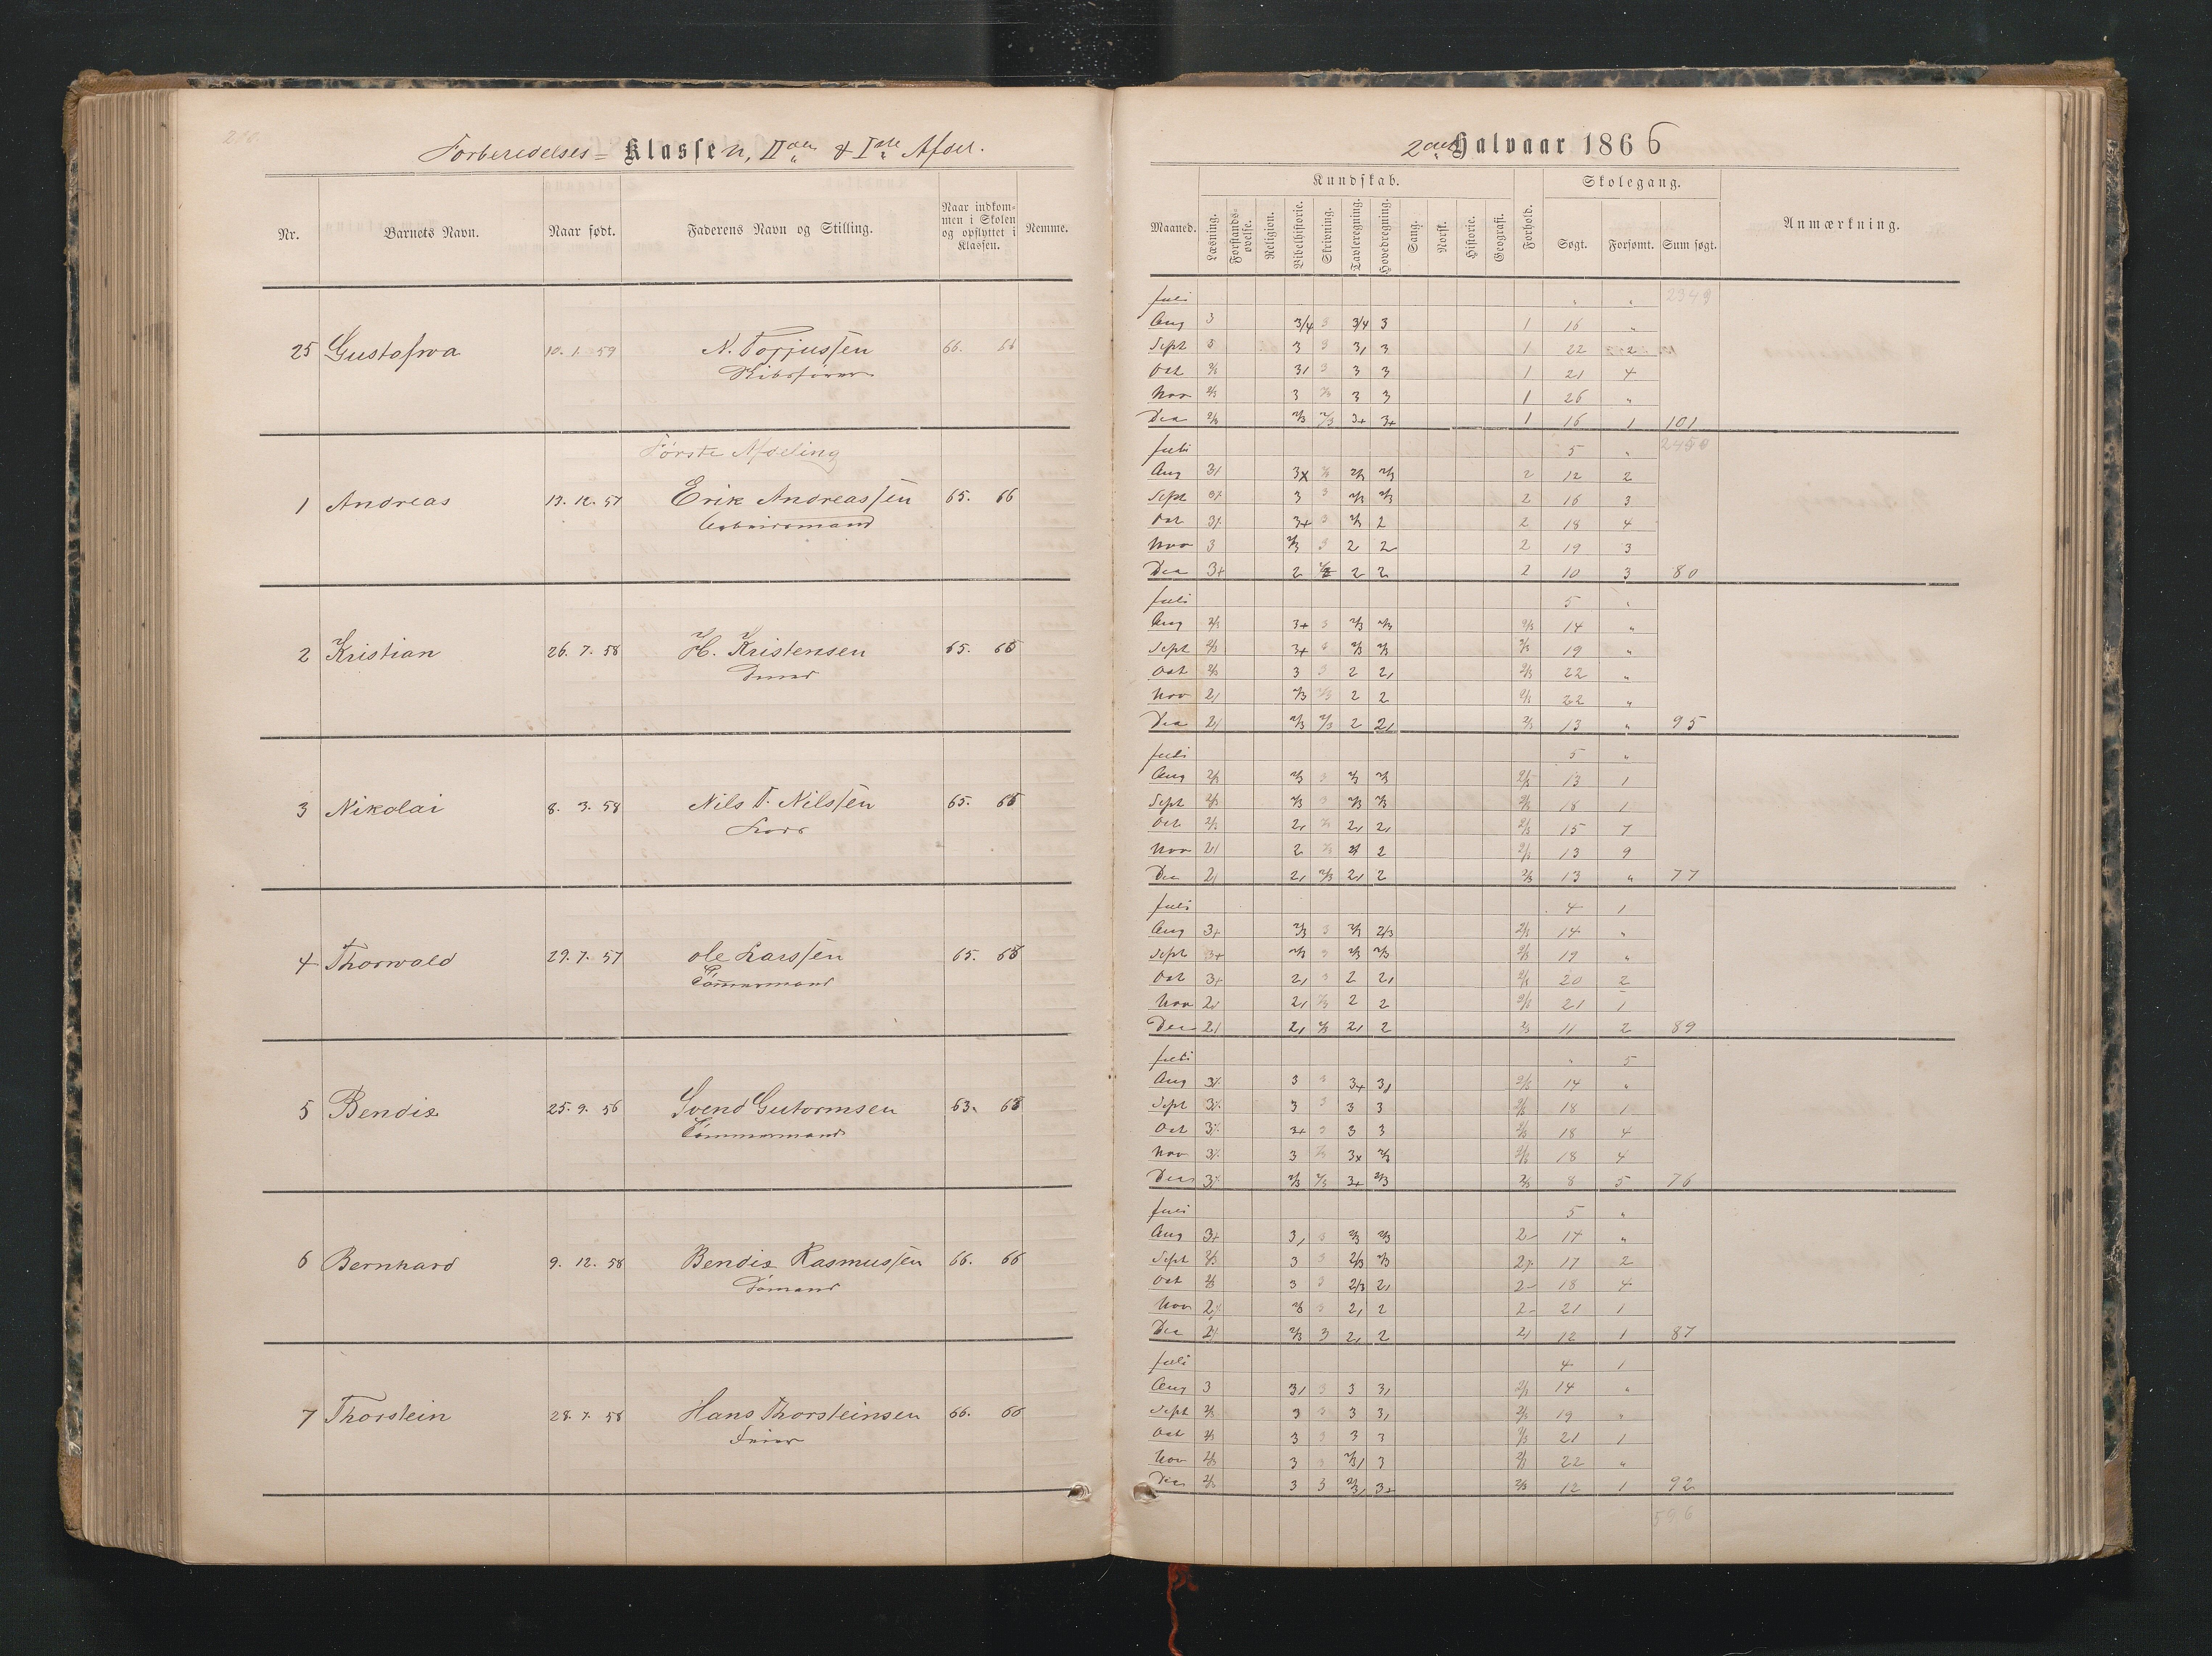 Forberedelses= Klassen, IIden & Iste Afdel.
Nr. Barnets Navn. Naar født. Faderens Navn og Stilling. Naar indkommen i Skolen og opflyttet i Klassen. Nemme.
25 Gustafwa 10. 1. 59 N. Torjussen 66. 66
Første Afdeling
1 Andreas 13. 12. 57 Erik Andreassen 65. 66
Arbeidsmand
2 Kristian 26. 7. 58 H. Kristensen 65.
3 Nikolai 8. 3. 58 Nils T. Nilssen 65.
Lods
4 Thorwald 29. 7. 57 Ole Larssen 65.
Tømmermand
5 Bendix 25. 9. 56 Svend Gutormsen 63.
Tømmermand
6 Bernhard 9. 12. 58 Bendix Rasmussen 66. 66
Sømand
7 Thorstein 28. 7. 58 Hans Thorsteinsen 66. 66
2det Halvaar 1866
Kundskab. Skolegang.
Maaned. Læsning. Forstands-øvelse. Religion. Bibelhistorie. Skrivning. Tavleregning. Hovedregning. Sang. Norsk. Historie. Geografi. Forhold. Søgt. Forsømt. Sum søgt. Anmærkning.
Juli " " 2349
Aug 3 3/4 3 3/4 3 1 16 "
Sept 3 3 3 3, 3 1 22 2
Oct 2/3 3, 3 3 3 1 21 4
Nov 2/3 3 2/3 3 3 1 26 "
Dec 2/3 2/3 2/3 3+ 3+ 1 16 1 101
Juli 5 " 2450
Aug 3, 3x 2/3 2/3 2 12 2
Sept 3 3 2/3 2/3 2 16 3
Oct 3+ 3 2/3 2 2 18 4
Nov 3 2/3 3 2 2 2 19 3
Dec 3+ 2 2 2 2 10 3 80
Juli 5 "
Aug 2/3 3+ 3 2/3 2/3 2/3 14 "
Sept 2/3 3+ 3 2/3 2/3 2/3 19 "
Oct 2/3 3 3 2 2, 2/3 22 "
Nov 2, 2/3 2/3 2 2 2/3 22 "
Dec 2, 2/3 2/3 2 2, 2/3 13 " 95
Juli 5 "
Aug 2/3 2/3 3 2/3 2/3 2/3 13 1
Sept 2/3 2/3 3 2/3 2/3 2/3 18 1
Oct 2/3 2, 2/3 2, 2, 2/3 15 7
Nov 2, 2 2/3 2 2/3 13 9
Dec 2, 2, 2/3 2, 2 2/3 13 " 77
Juli 4 1
Aug 3+ 2/3 3 2/3 2/3 2/3 14 "
Sept 3+ 2/3 3 2/3 2/3 2/3 19 "
Oct 3+ 2, 3 2 2, 2/3 20 2
Nov 2, 2, 2/3 2 2 2/3 21 1
Dec 2, 2, 2/3 2, 2 2/3 11 2 89
Juli " 5
Aug 3 3 3+ 3, 2/3 14 "
Sept 3 3 3 3 2/3 18 1
Oct 3+ 3 3 3 2/3 18 4
Nov 3 2/3 3x 2/3 2/3 18 4
Dec 2/3 2/3 3+ 2/3 2/3 8 5 76
Juli 5 "
Aug 3+ 3, 3 2/3 2/3 2 14 "
Sept 2/3 3 3 2/3 2/3 2 17 2
Oct 2/3 3 3 2/3 2, 2 18 4
Nov 2 2/3 3 2, 2 2 21 1
Dec 2/3 3 2, 2 2, 12 1 87
Juli 4 1
Aug 3 3, 3 3 3, 2/3 14 "
Sept 2/3 3 3 3 3, 2/3 19 "
Oct 2/3 3 3 3 3 2/3 21 1
Nov 2/3 3 3 2/3, 3 2/3 22 "
Dec 2/3 3 3 2/3, 3+ 2/3 12 1 92
596